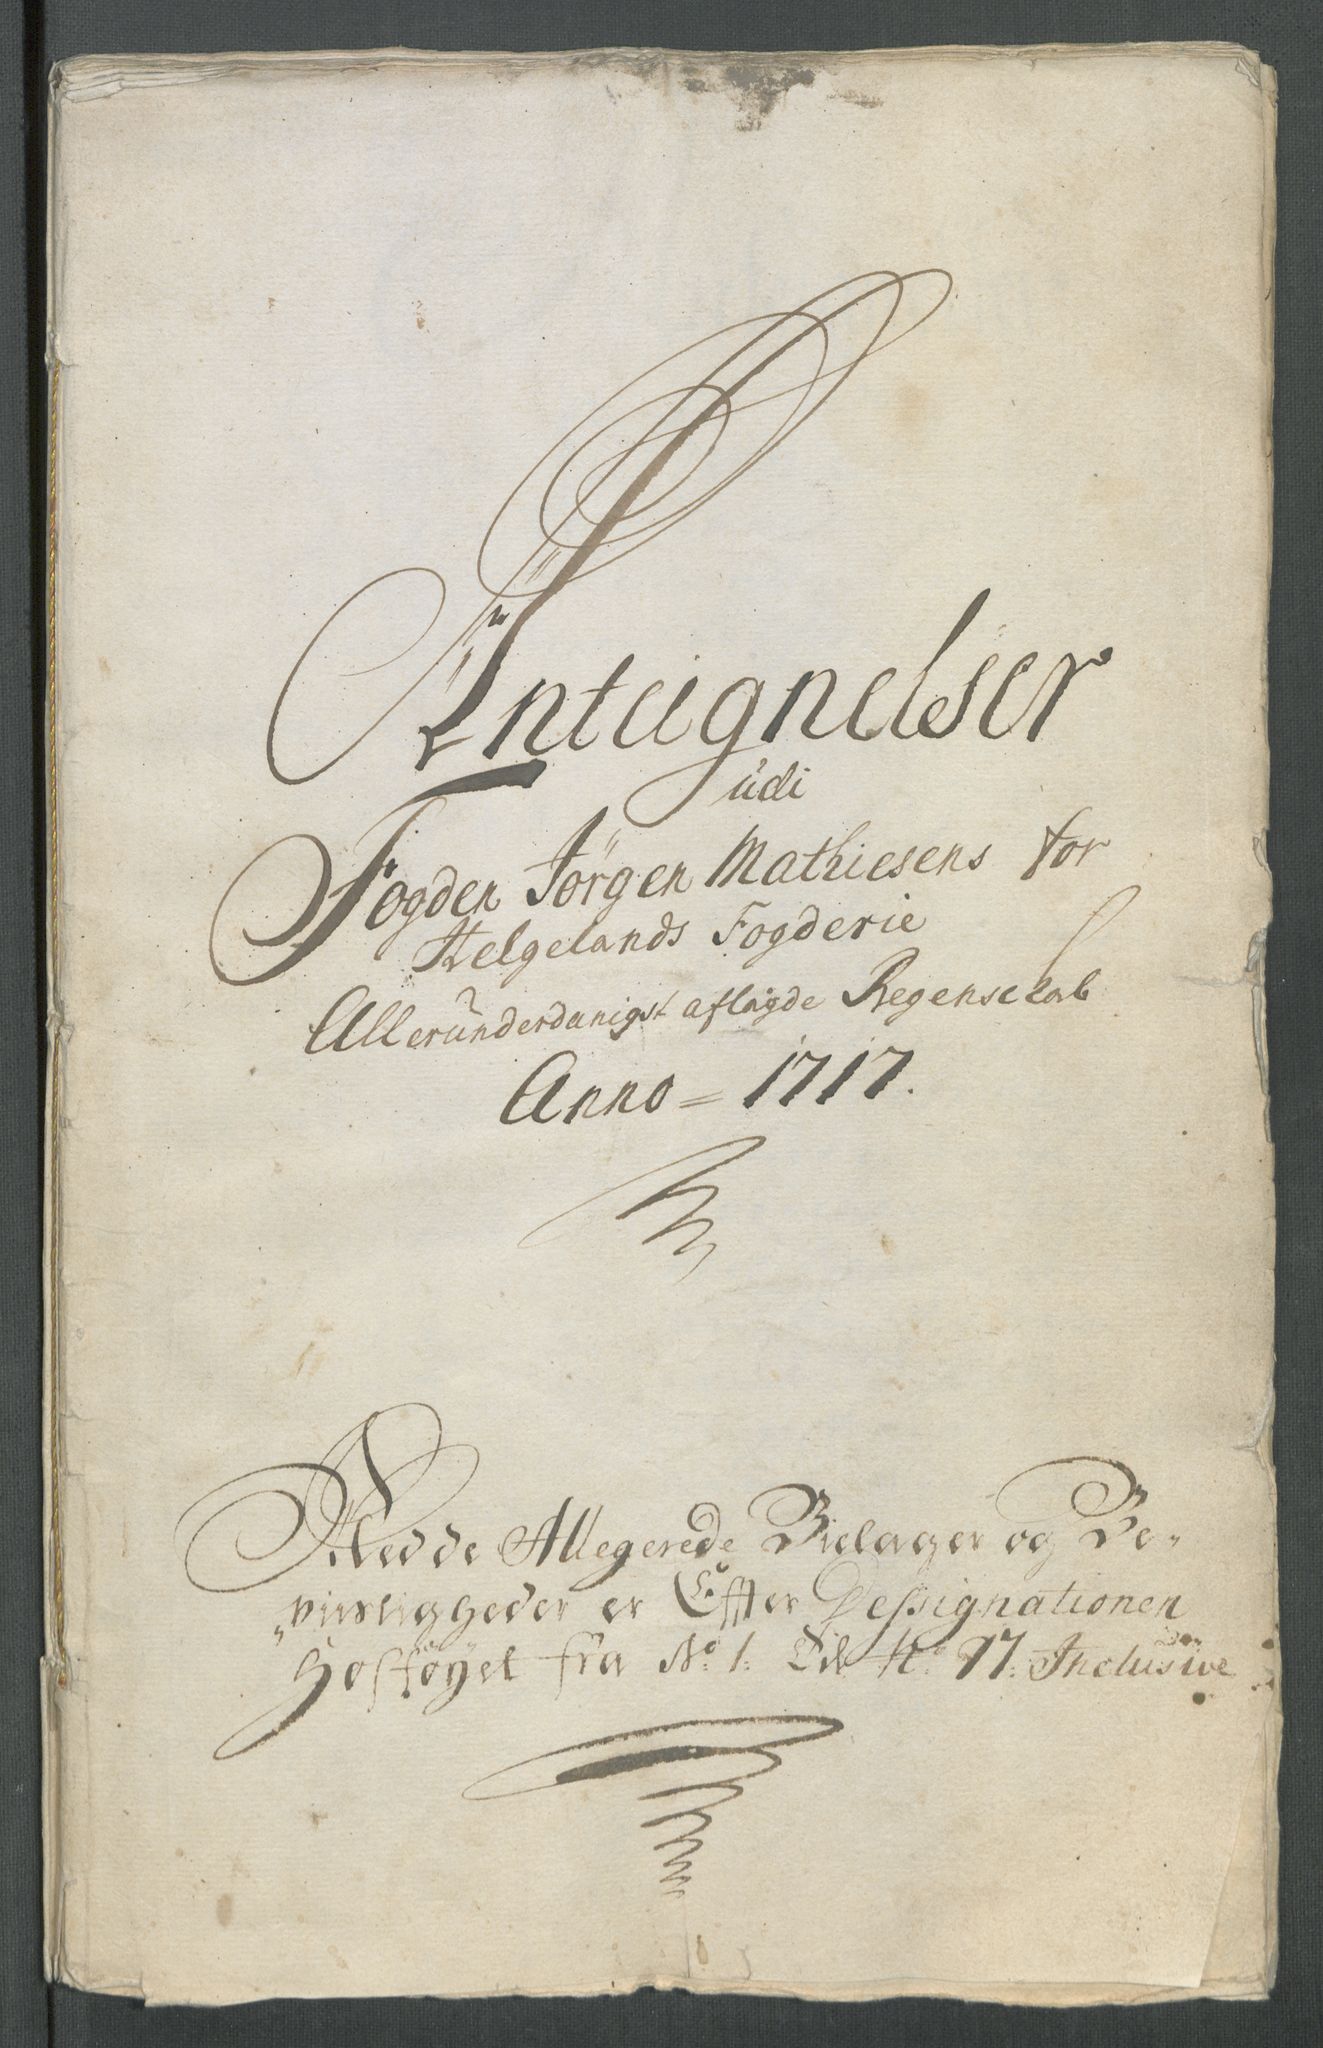 Antegnelser
udi
Fogden Jörgen Mathiesens for
Helgelands Fogderie
Allerunderdanigst aflagde Regenskab
Anno = 1717.
Med de Allegerede Bielager og Be„
„viisligheder er Effter Dessignationen
Hosföyet fra No. 1. Til No. 17. Inclusive